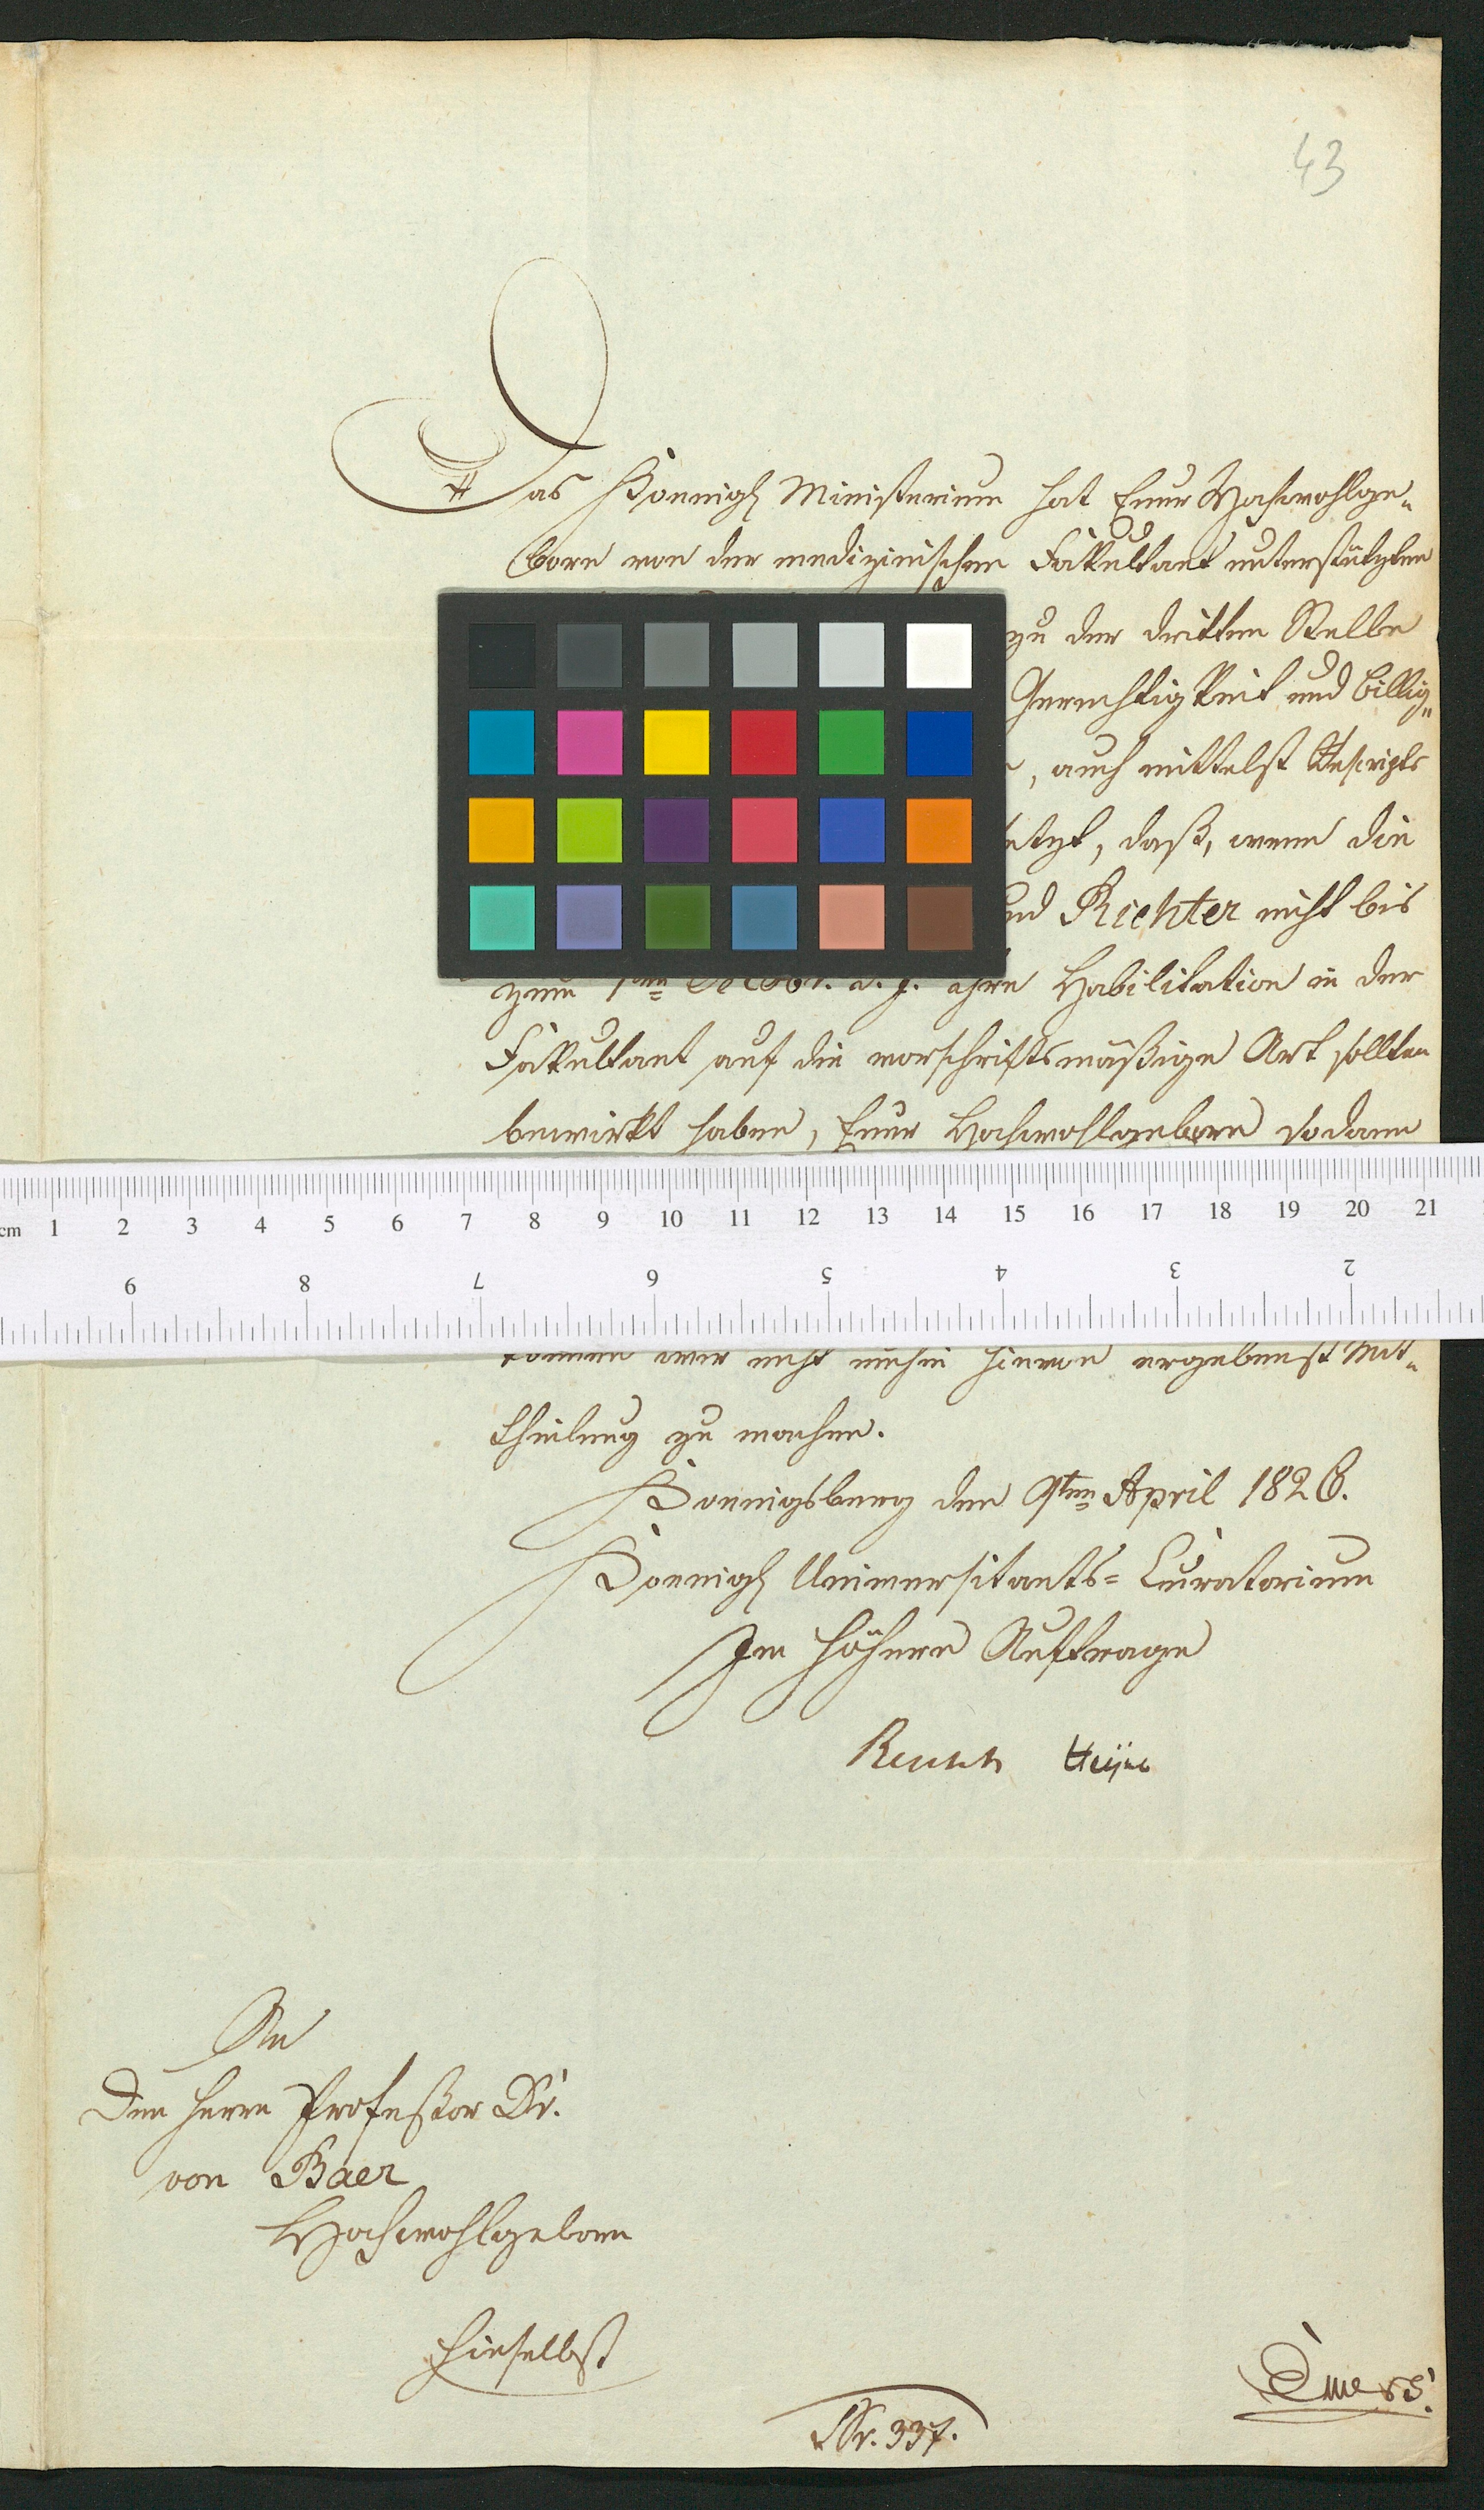 43
Das Koenigl Ministerium hat Euer Hochwohlge-
born von der medizinischen Fakultaet unterstützten
zu der dritten Stelle
Gerechtigkeit und Billig-
, auch mittelst Rescripts
etzt, daß, wenn die
und Richter nicht bis
zum 1ten Octobr. d. J. ihre Habilitation in der
Fakultaet auf die vorschriftsmäßige Art sollten
bewirkt haben, Euer Hochwohlgeborn sodann
cm 1 2 3 4 5 6 7 8 9 10 11 12 13 14 15 16 17 18 19 20 21
9 8 7 6 5 4 3 2
können wir nicht umhin hievon ergebenst Mit-
theilung zu machen.
Koenigsberg den 9ten April 1826.
Koenigl Universitaets-Curatorium
Im höhern Auftrage
Reusch
An
Den Herrn Profeßor Dr.
von Baer
Hochwohlgeborn
hieselbst
Nr. 337.